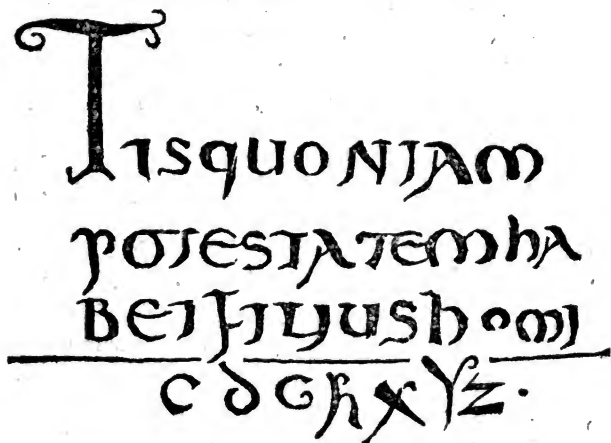 TISQUONIAM
POTESTATEMHA
BETFILIUSHOMI
C D G H X Y Z .